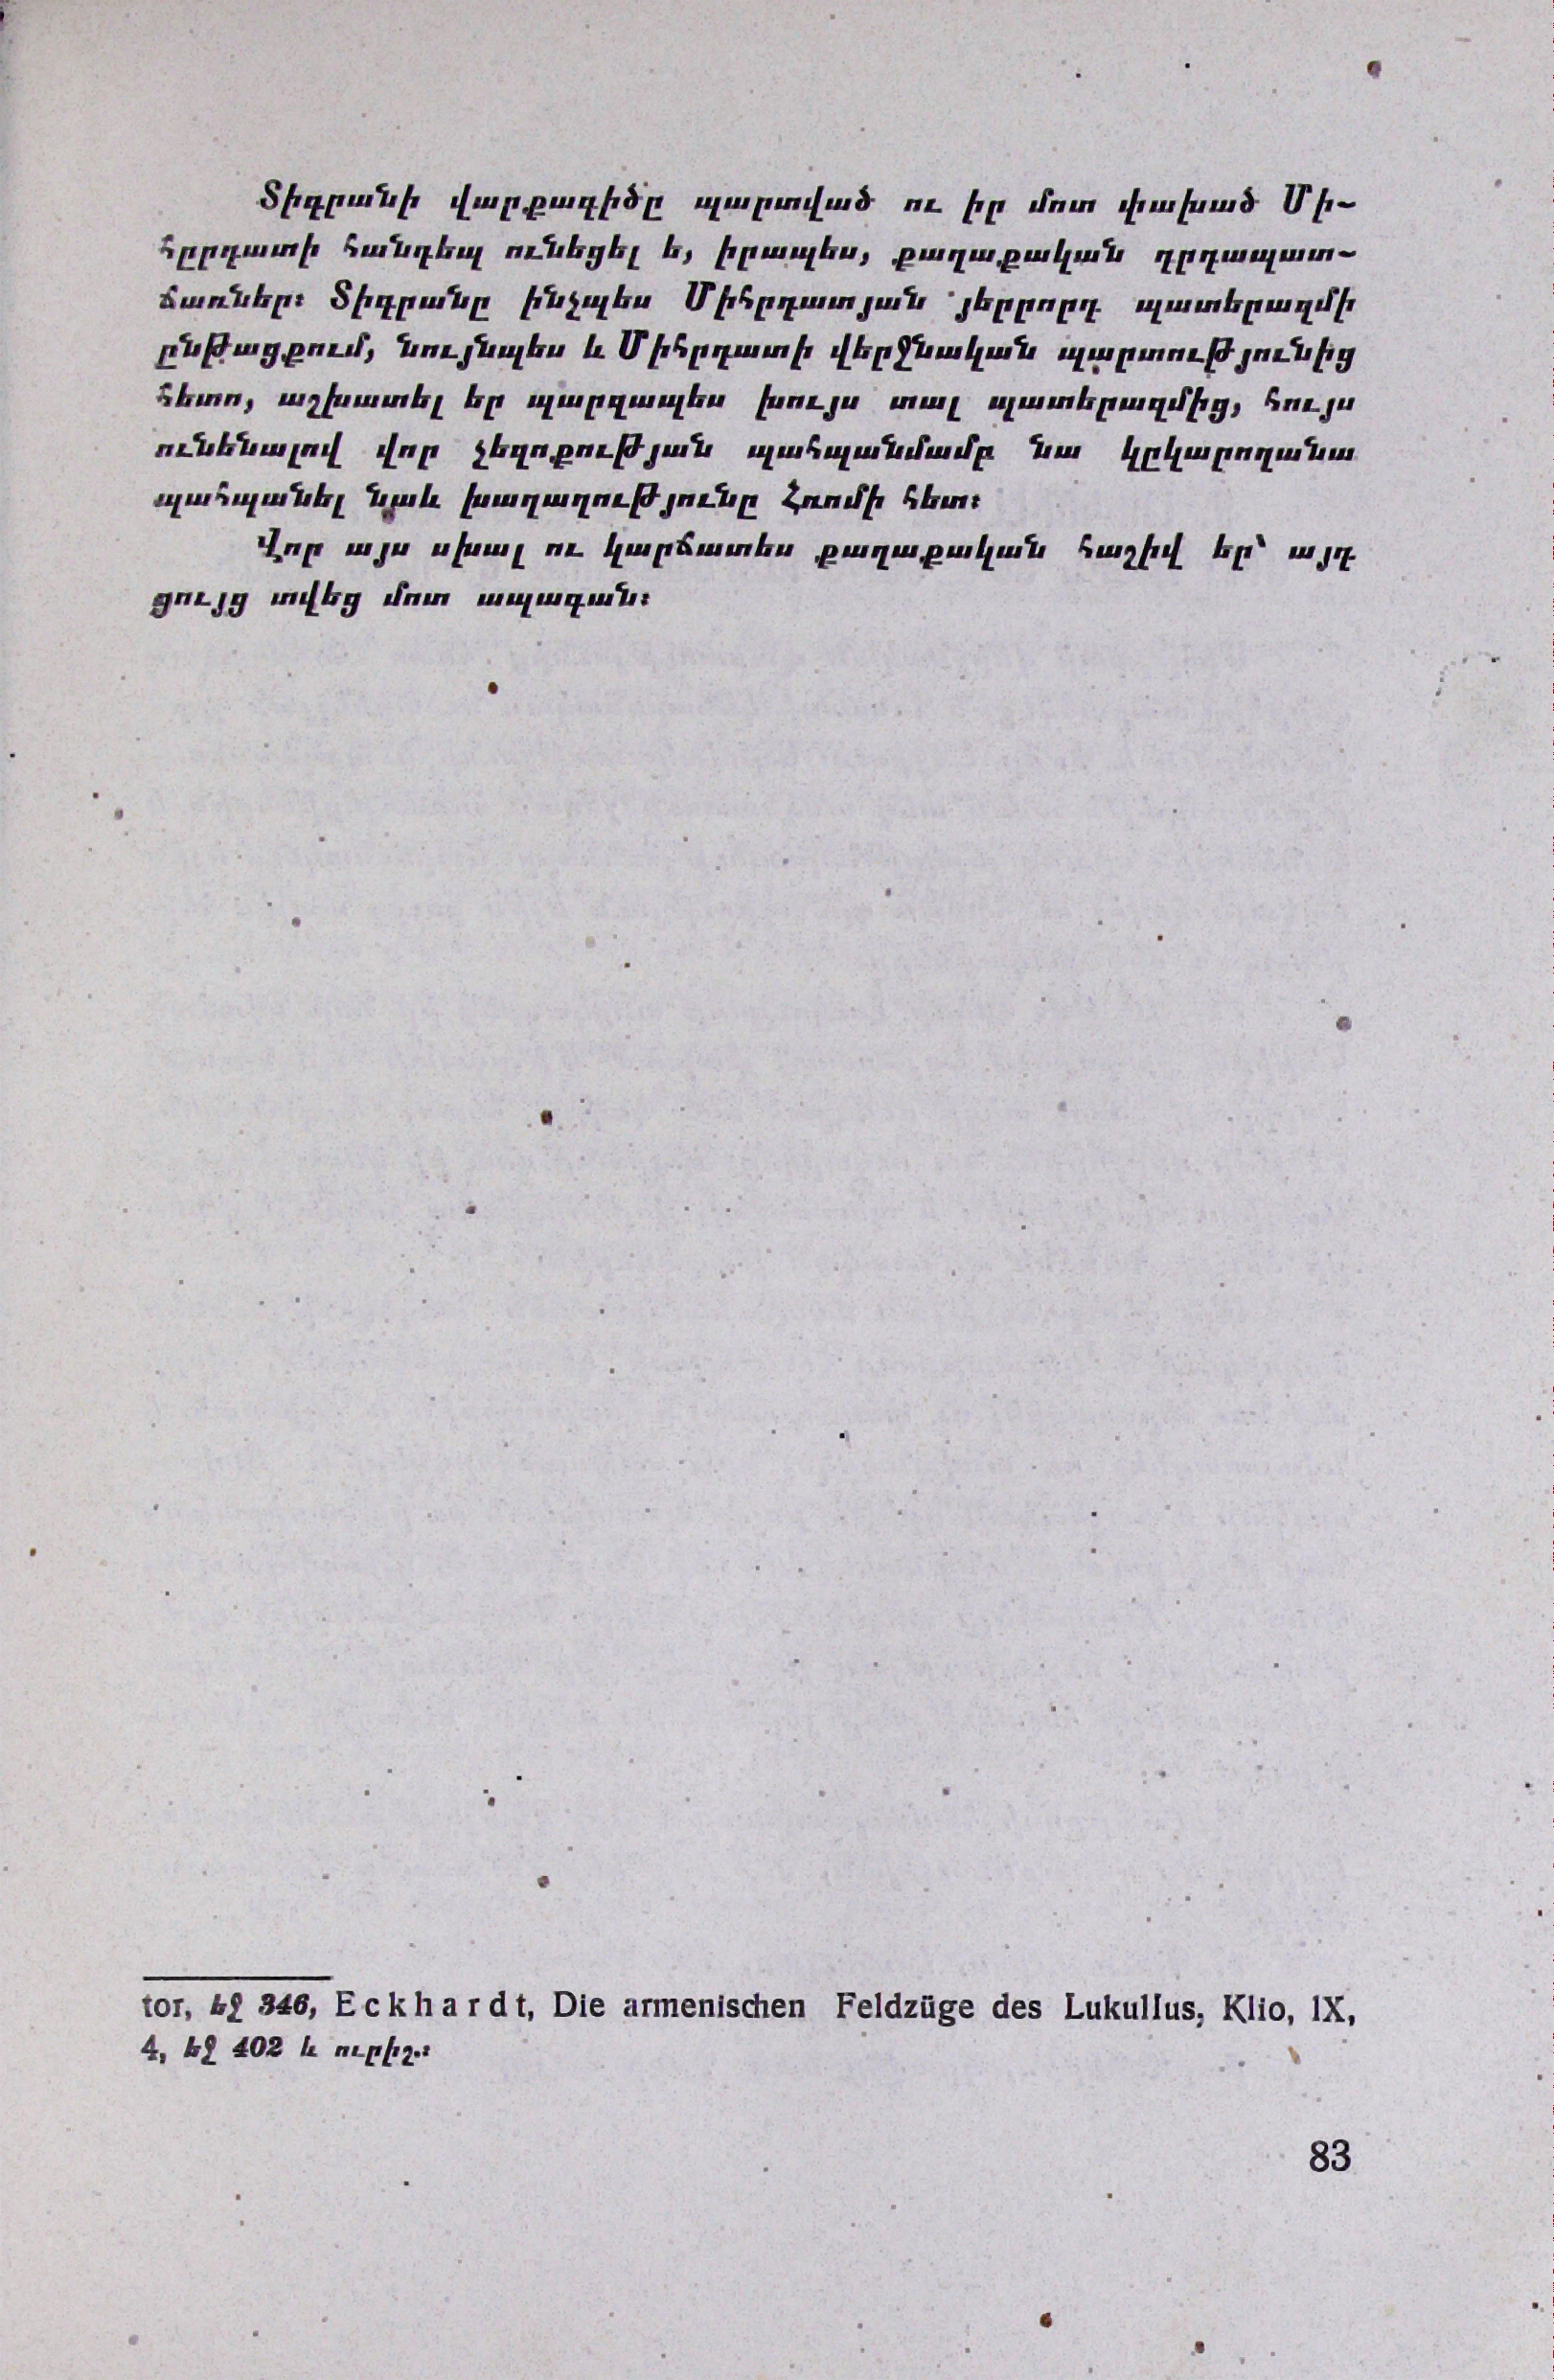 Տիգրանի վարքագիծը պարտված ու իր մոտ փախած Մի-
հըրդատի հանդեպ ունեցել ե, իրապես, քաղաքական դրդապատ-
ճառներ։ Տիգրանը ինչպես Միհրդատյան յերրորդ պատերազմի
ընթացքում, նույնպես և Միհրդատի վերջնական պարտությունից
հետո, աշխատել եր պարզապես խույս տալ պատերազմից, հույս
ունենալով վոր չեզոքության պահպանմամբ նա կըկարողանա
պահպանել նաև խաղաղությունը Հռոմի հետ։
Վոր այս սխալ ու կարճատես քաղաքական հաշիվ եր՝ այդ
ցույց տվեց մոտ ապագան։
tor, եջ 346, Eckhardt, Die armenischen Feldzüge des Lukullus, Klio, IX,
4, եջ 402 և ուրիշ.։
83